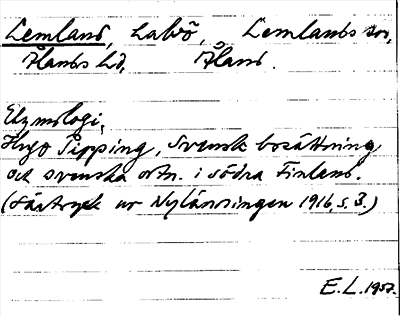 Lemland, Labö, Lemlands sn,
Ålands hd, Åland.
Etymologi,
Hugo Pipping, Svensk bosättning
och svenska ortn. i södra Finland.
(Särtryck ur Nylänningen 1916, s. 3.)
E. L. 1957.